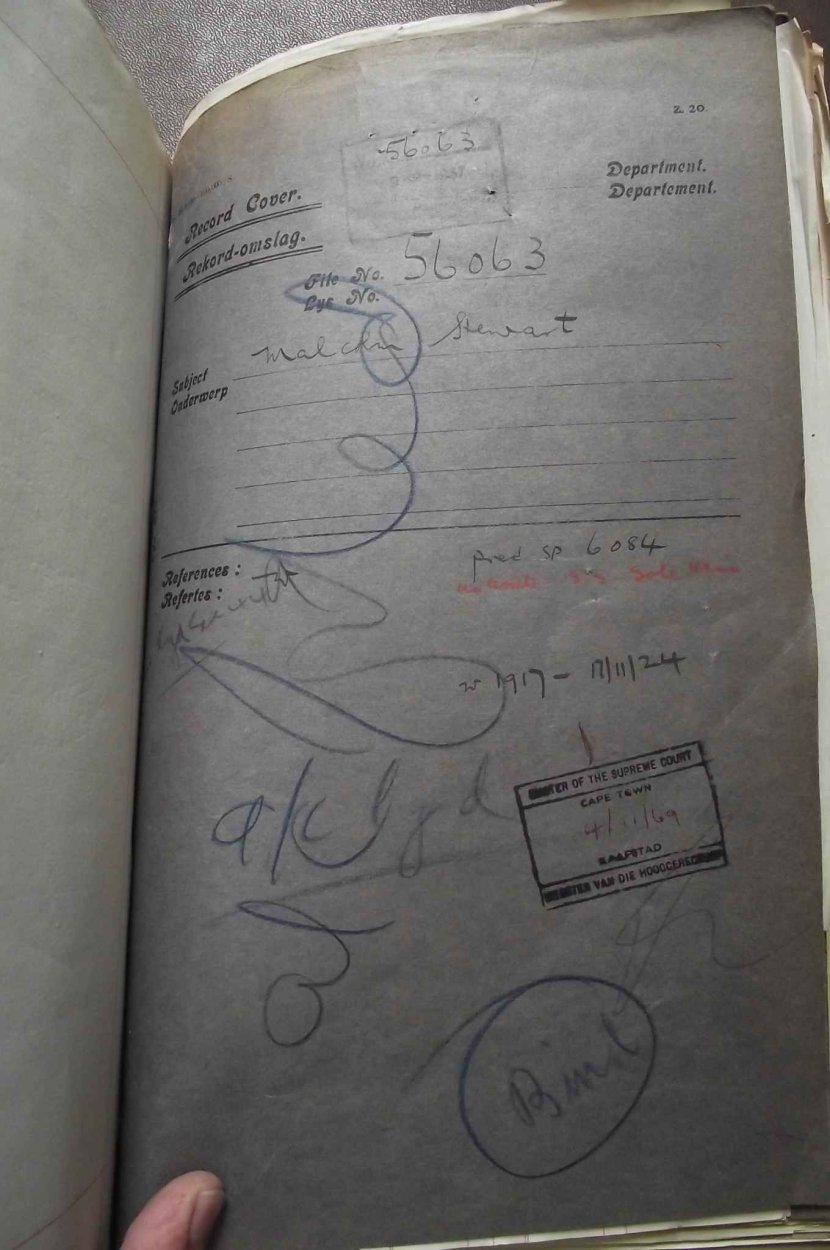 Z. 20.
56063
Department.
Departement.
Record Cover.
Rekord-omslag.
File No. 56063
Lys No.
Malcolm Stewart
Subject
Onderwerp
References :
Refertes :
pred SP 6084
1917 - 17/11/24
a/c
MASTER OF THE SUPREME COURT
CAPE TOWN
4/11/69
KAAPSTAD
MEESTER VAN DIE HOOGGEREGSHOF
Bind